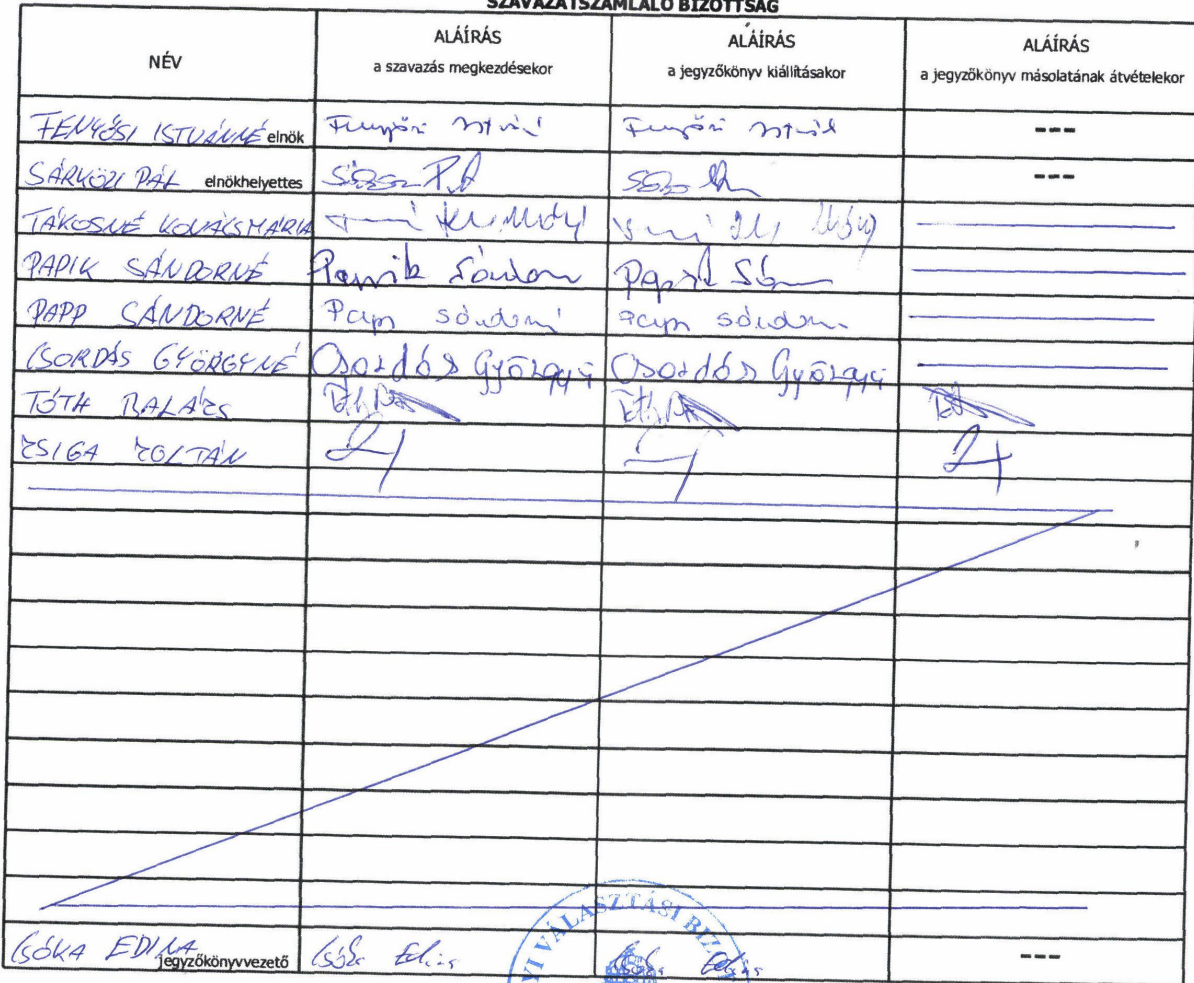 SZAVAZATSZÁMLÁLÓ BIZOTTSÁG
NÉV
ALÁÍRÁS
a szavazás megkezdésekor
ALÁÍRÁS
a jegyzőkönyv kiállításakor
ALÁÍRÁS
a jegyzőkönyv másolatának átvételekor
FENYŐSI ISTVÁNNÉ elnök ---
SÁRKÖZI PÁL elnökhelyettes ---
TAKOSNÉ KOVÁCS MÁRIA
PAPIK SÁNDORNÉ
PAPP SÁNDORNÉ Papp Sándorné Papp Sándorné
CSORDÁS GYÖRGYNÉ Csordás Györgyné Csordás Györgyné
TÓTH BALÁZS
ZSIGA ZOLTÁN
CSÓKA EDINA jegyzőkönyvvezető Csóka Edina Csóka Edina ---
VÁLASZTÁSI